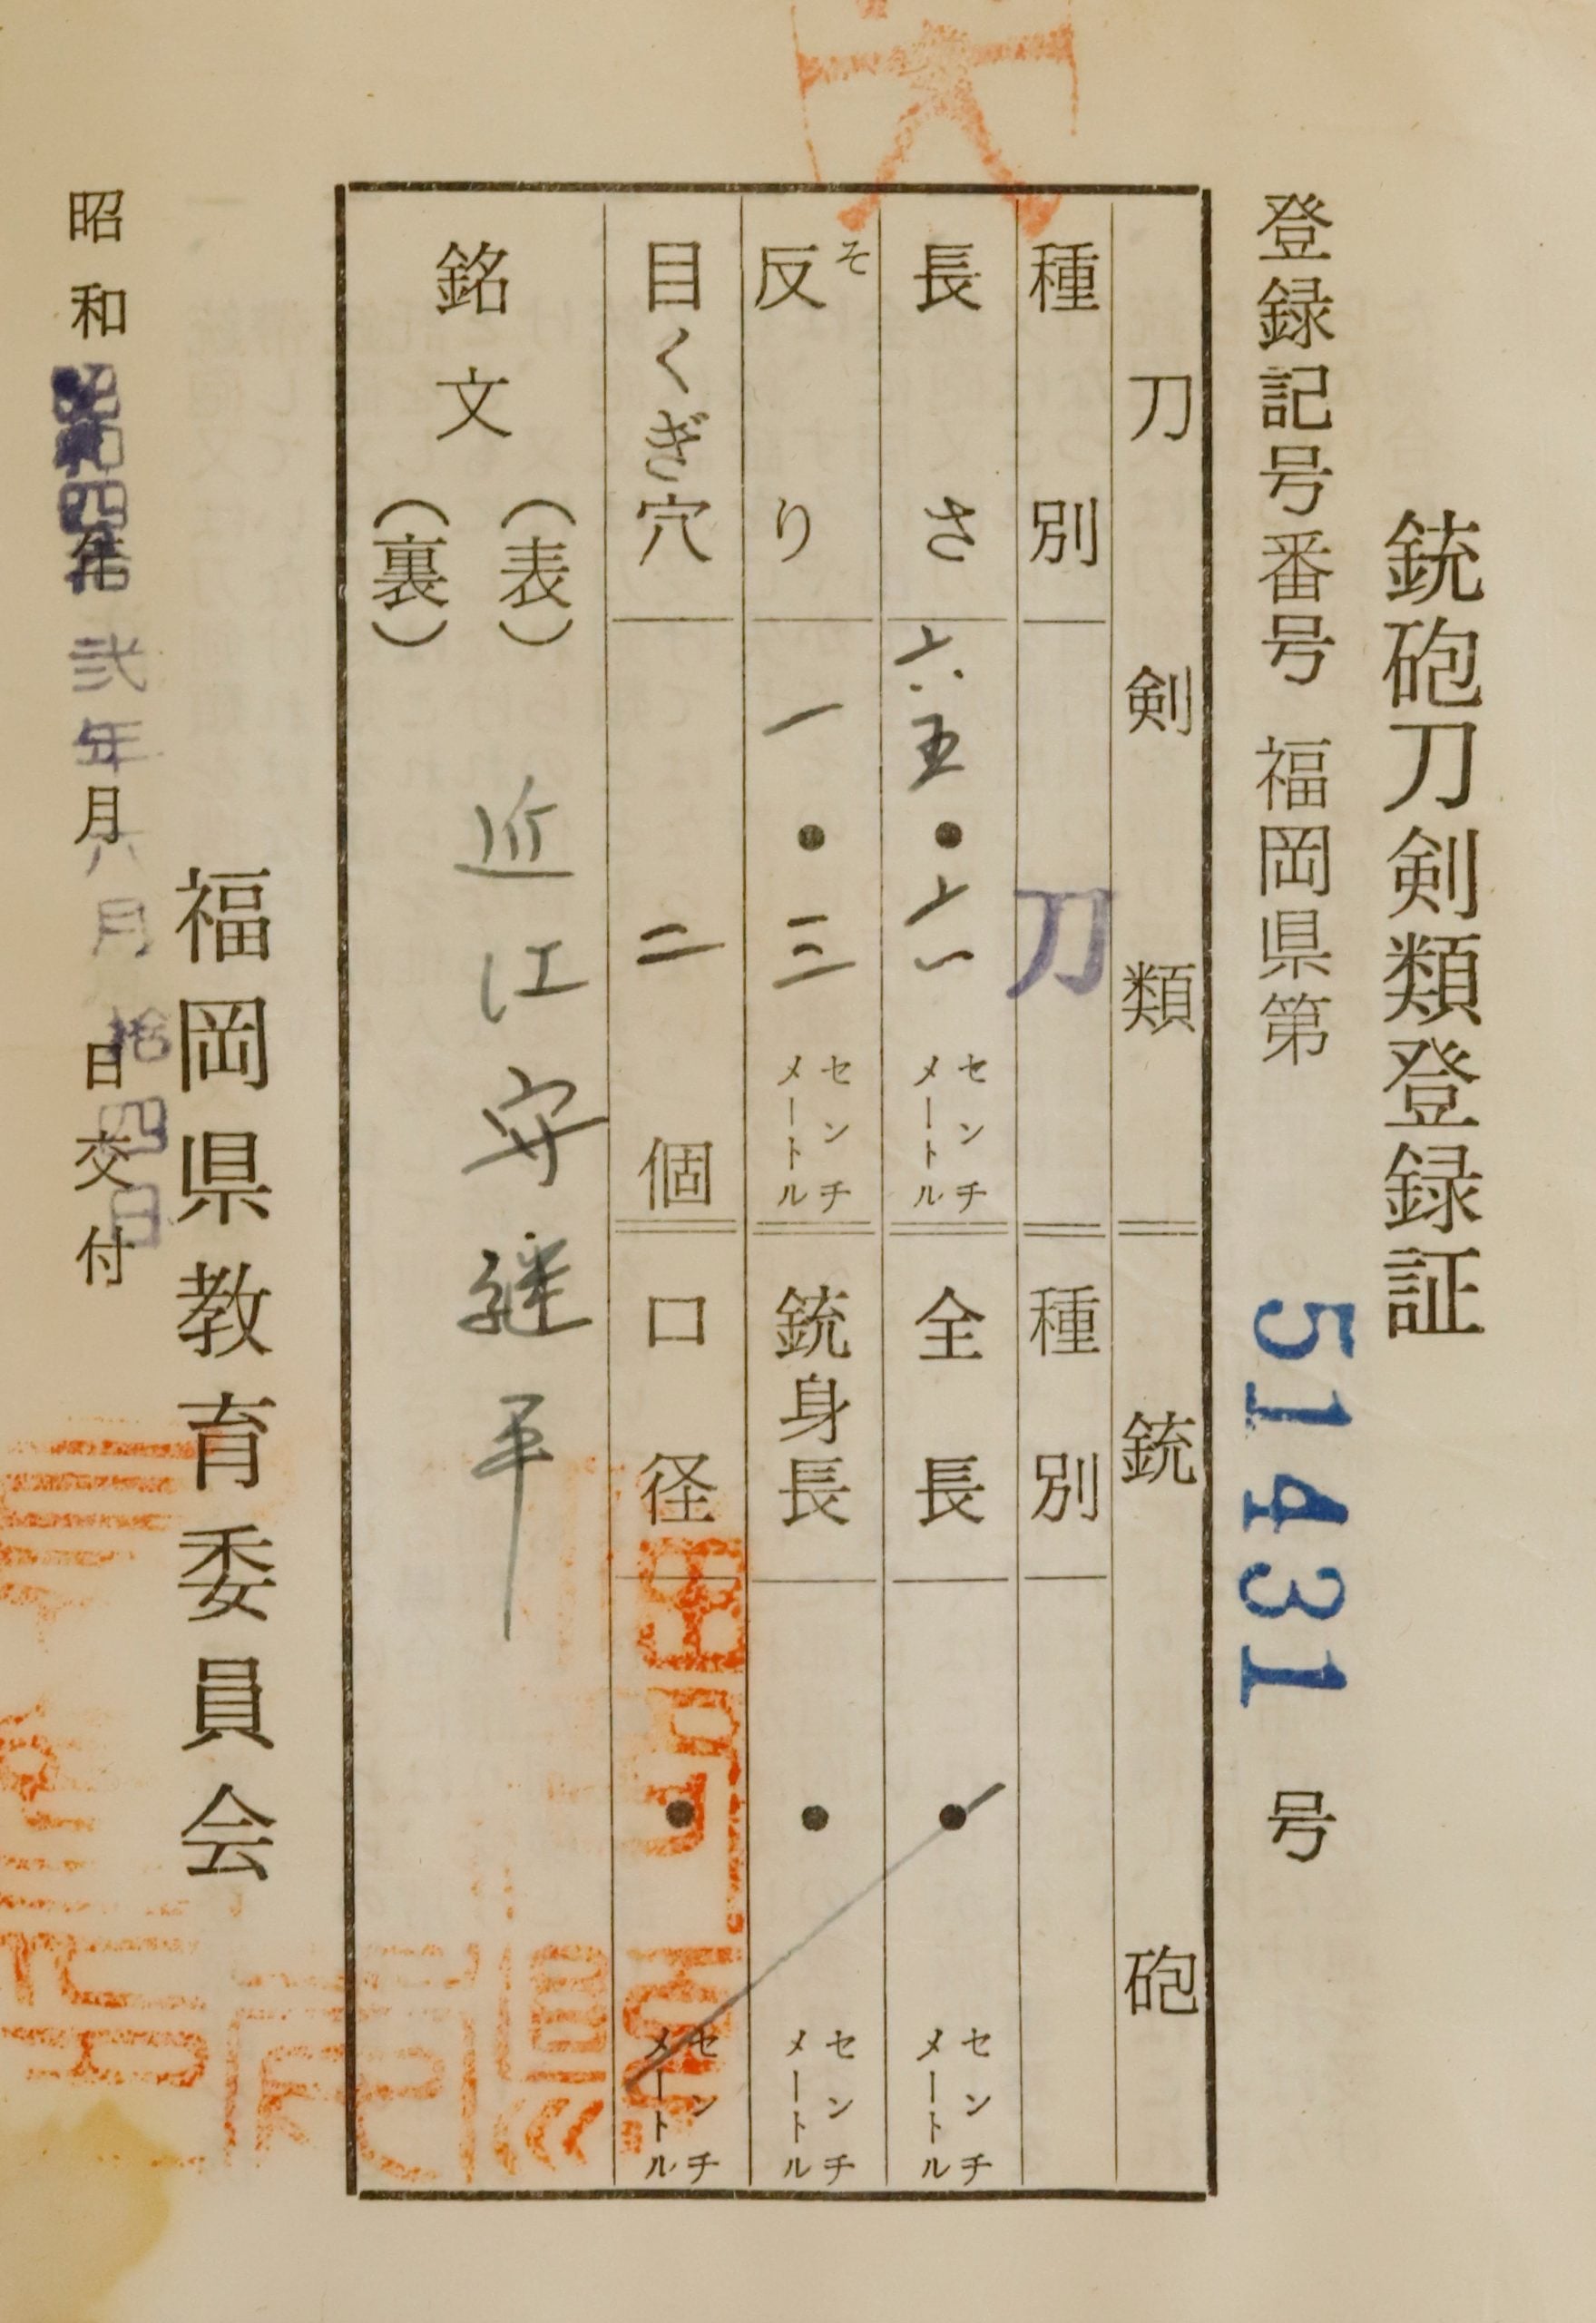 銃砲刀剣類登録証
登録記号番号 福岡県第 51431 号
刀剣類 銃砲
種別 刀 種別
長さ 六五・六 センチメートル 全長 ・ センチメートル
反り 一・三 センチメートル 銃身長 ・ センチメートル
そ
目くぎ穴 二 個 口径 ・ センチメートル
銘文 (表) 近江守継平
(裏)
福岡県教育委員会
昭和 四拾弐年 六月 拾四日 交付